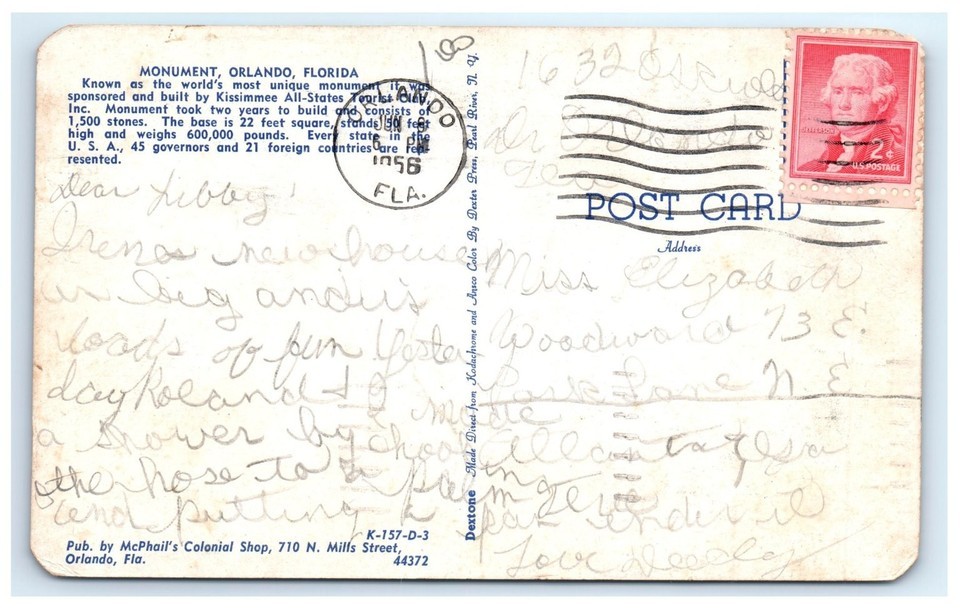 MONUMENT, ORLANDO, FLORIDA
Known as the world's most unique monument it was
sponsored and built by Kissimmee All-States Tourist Club
Inc. Monument took two years to build and consists of
1,500 stones. The base is 22 feet square, stands 50 feet
high and weighs 600,000 pounds. Every state in the
U. S. A., 45 governors and 21 foreign countries are rep-
resented.
100
ORLANDO
JUN 8
6 PM
1956
FLA.
1632
Dr Orlando
Fla
JEFFERSON
2¢
U.S. POSTAGE
POST CARD
Address
Dear Libby!
Irenes new house
is big and is
loads of fun Yester
day Roland + I
made
a shower by
the hose to a palm
and putting a pan under it
Love
Miss Elizabeth
Woodward 73 E.
Park Lane N E
Atlanta
Dextone Made Direct from Kodachrome and Ansco Color By Dexter Press, Pearl River, N. Y.
K-157-D-3
Pub. by McPhail's Colonial Shop, 710 N. Mills Street,
Orlando, Fla.
44372